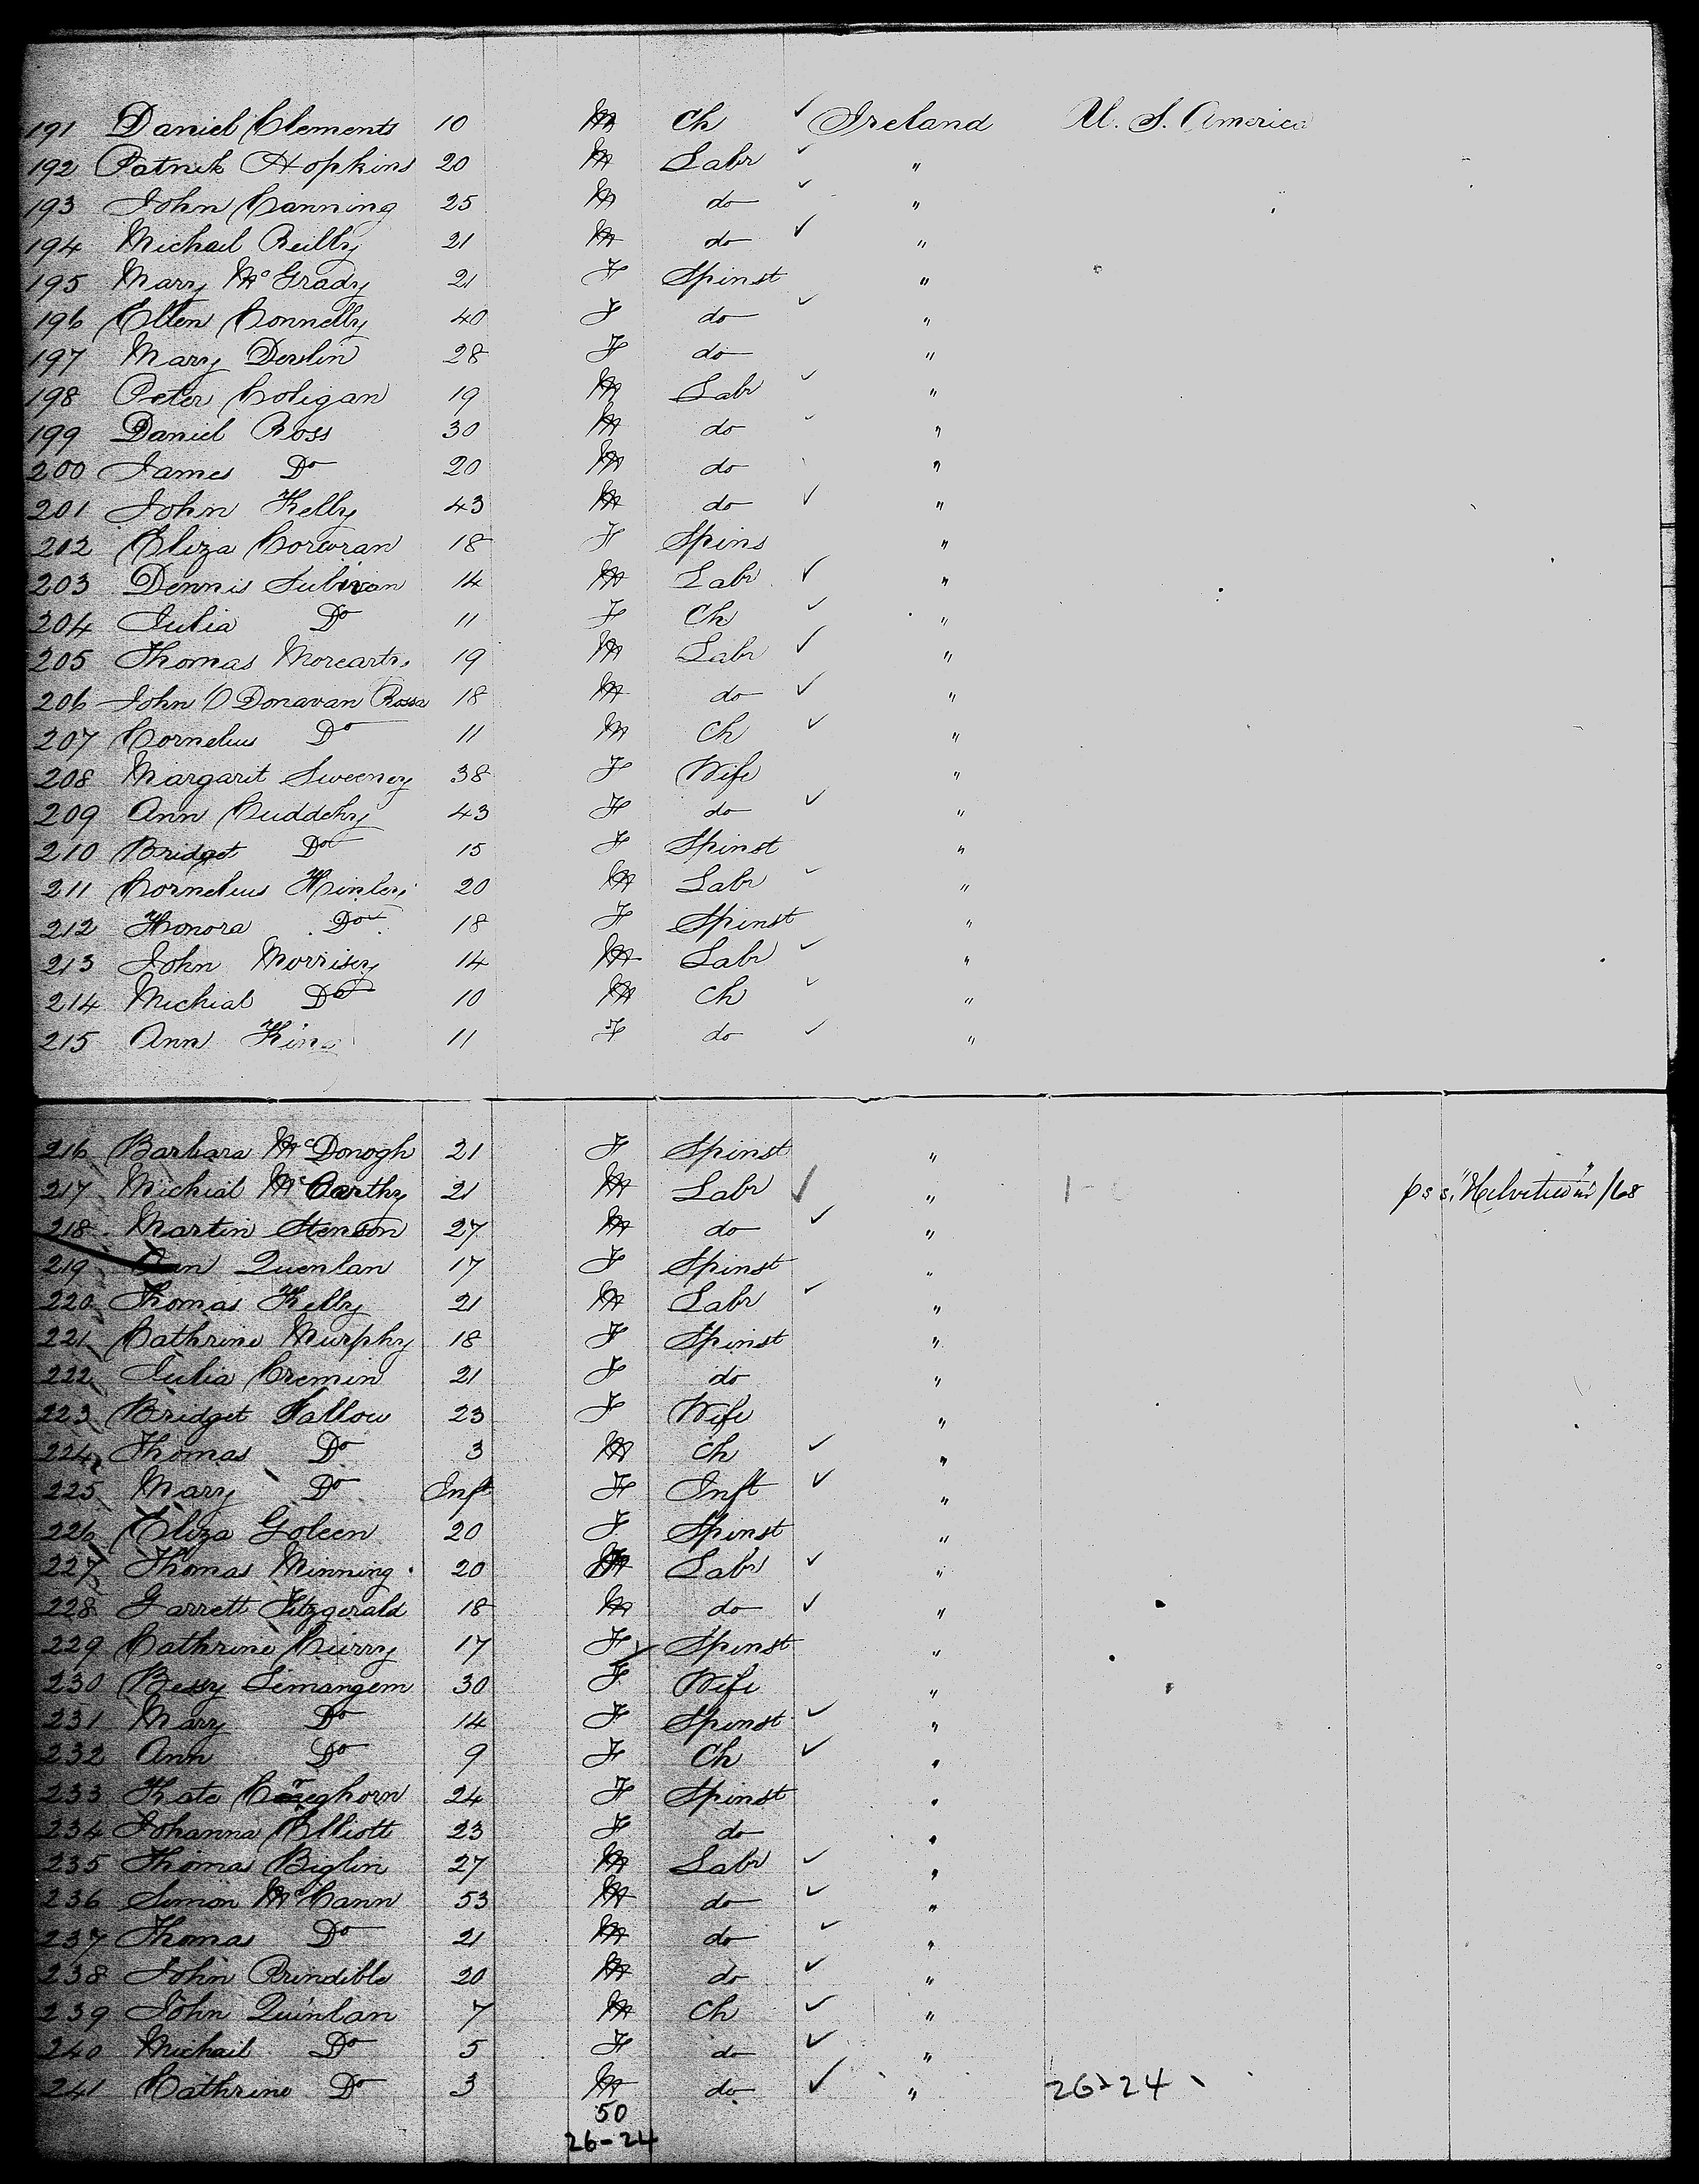 191 Daniel Clements 10 M Ch ✓ Ireland U. S. America
192 Patrick Hopkins 20 M Labr ✓ "
193 John Canning 25 M do ✓ "
194 Michael Reilly 21 M do ✓ "
195 Mary McGrady 21 F Spinst "
196 Ellen Connelly 40 F do ✓ "
197 Mary Devlin 28 F do "
198 Peter Coligan 19 M Labr ✓ "
199 Daniel Ross 30 M do ✓ "
200 James Do 20 M do "
201 John Kelly 43 M do ✓ "
202 Eliza Corcoran 18 F Spins "
203 Dennis Sulivan 14 M Labr ✓ "
204 Julia Do 11 F Ch ✓ "
205 Thomas 19 M Labr ✓ "
206 John O Donavan Rossa 18 M do ✓ "
207 Cornelius Do 11 M Ch ✓ "
208 Margarit Sweeney 38 F Wife "
209 Ann Cuddehy 43 F do ✓ "
210 Bridget Do 15 F Spinst "
211 Cornelius Hinley 20 M Labr ✓ "
212 Honora Do 18 F Spinst "
213 John Morrisey 14 M Labr ✓ "
214 Michial Do 10 M Ch ✓ "
215 Ann King 11 F do ✓ "
216 Barbara McDonogh 21 F Spinst "
217 Michial McCarthy 21 M Labr ✓ " /68
218 Martin Stenson 27 M do ✓ "
219 Ann Quenlan 17 F Spinst "
220 Thomas Kelly 21 M Labr ✓ "
221 Cathrine Murphy 18 F Spinst "
222 Julia Cremin 21 F do "
223 Bridget Fallow 23 F Wife "
224 Thomas Do 3 M Ch ✓ "
225 Mary Do Inft F Inft ✓ "
226 Eliza Goleen 20 F Spinst "
227 Thomas Minning 20 M Labr ✓ "
228 Garrett Fitzgerald 18 M do ✓ "
229 Cathrine Curry 17 F Spinst "
230 Bessy Limangem 30 F Wife "
231 Mary Do 14 F Spinst ✓ "
232 Ann Do 9 F Ch ✓ "
233 Kate 24 F Spinst "
234 Johanna Elliott 23 F do "
235 Thomas Biglin 27 M Labr ✓ "
236 Simon McCann 53 M do ✓ "
237 Thomas Do 21 M do ✓ "
238 John Prindible 20 M do ✓ "
239 John Quinlan 7 M Ch ✓ "
240 Michail Do 5 F do ✓ "
241 Cathrine Do 3 M do ✓ " 26-24
50
26-24